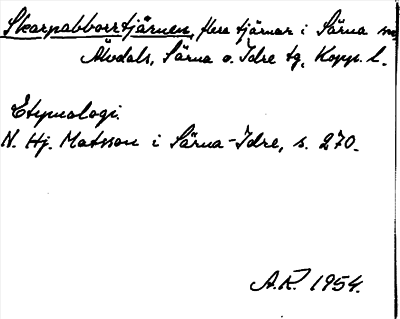 Skarpabborrtjärnen, flera tjärnar i Särna sn,
Älvdals, Särna o. Idre tg, Kopp. l.
Etymologi.
N. Hj. Matsson i Särna-Idre, s. 270.
A.R. 1954.